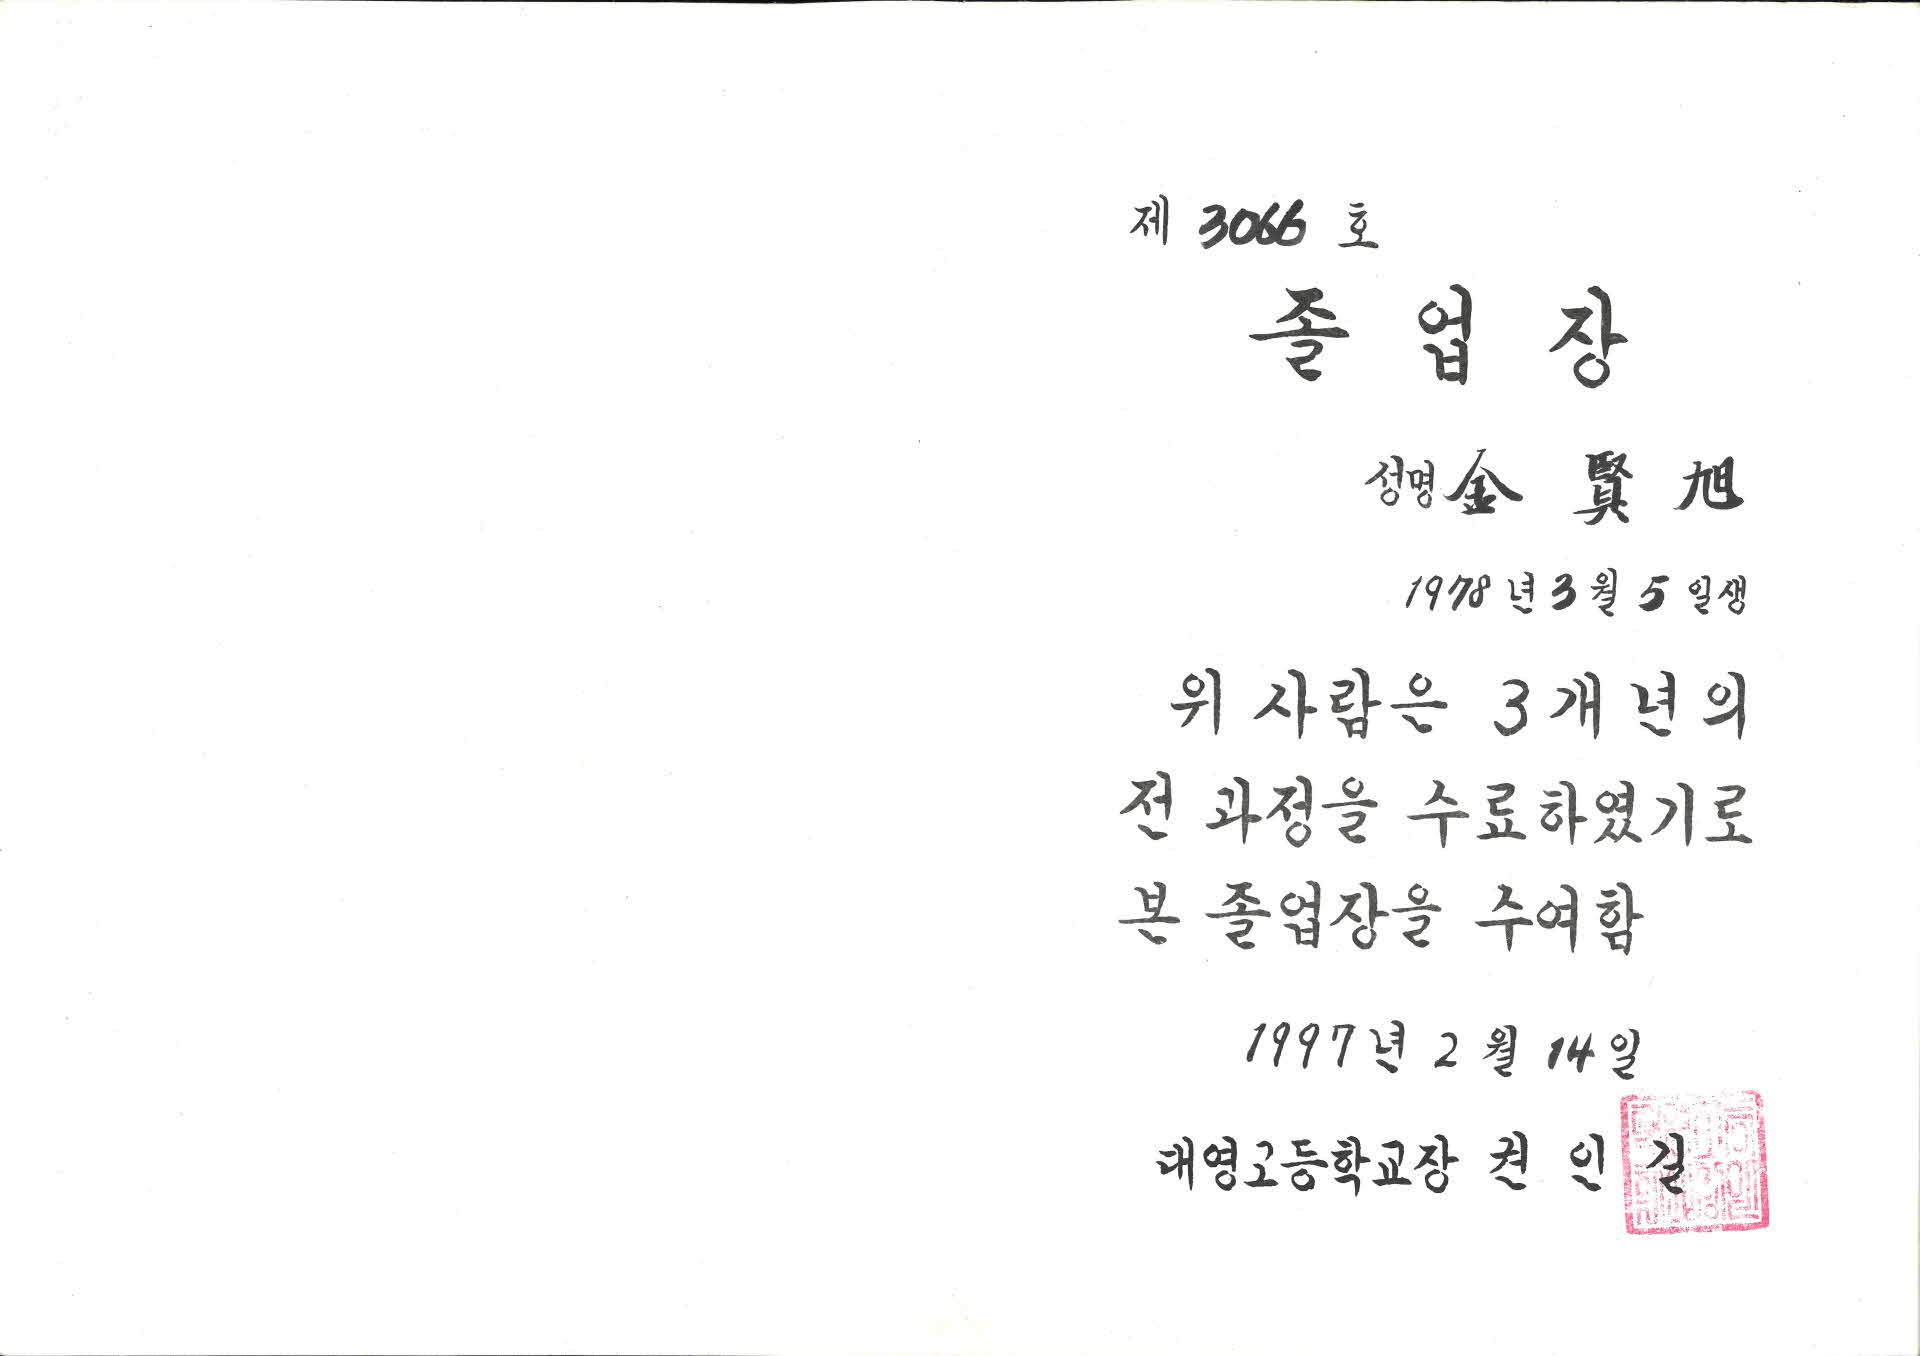 제 3066 호
졸 업 장
성명 金 賢 旭
1978 년 3 월 5 일생
위 사람은 3개년의
전 과정을 수료하였기로
본 졸업장을 수여함
1997년 2 월 14일
대영고등학교장 권 인 길